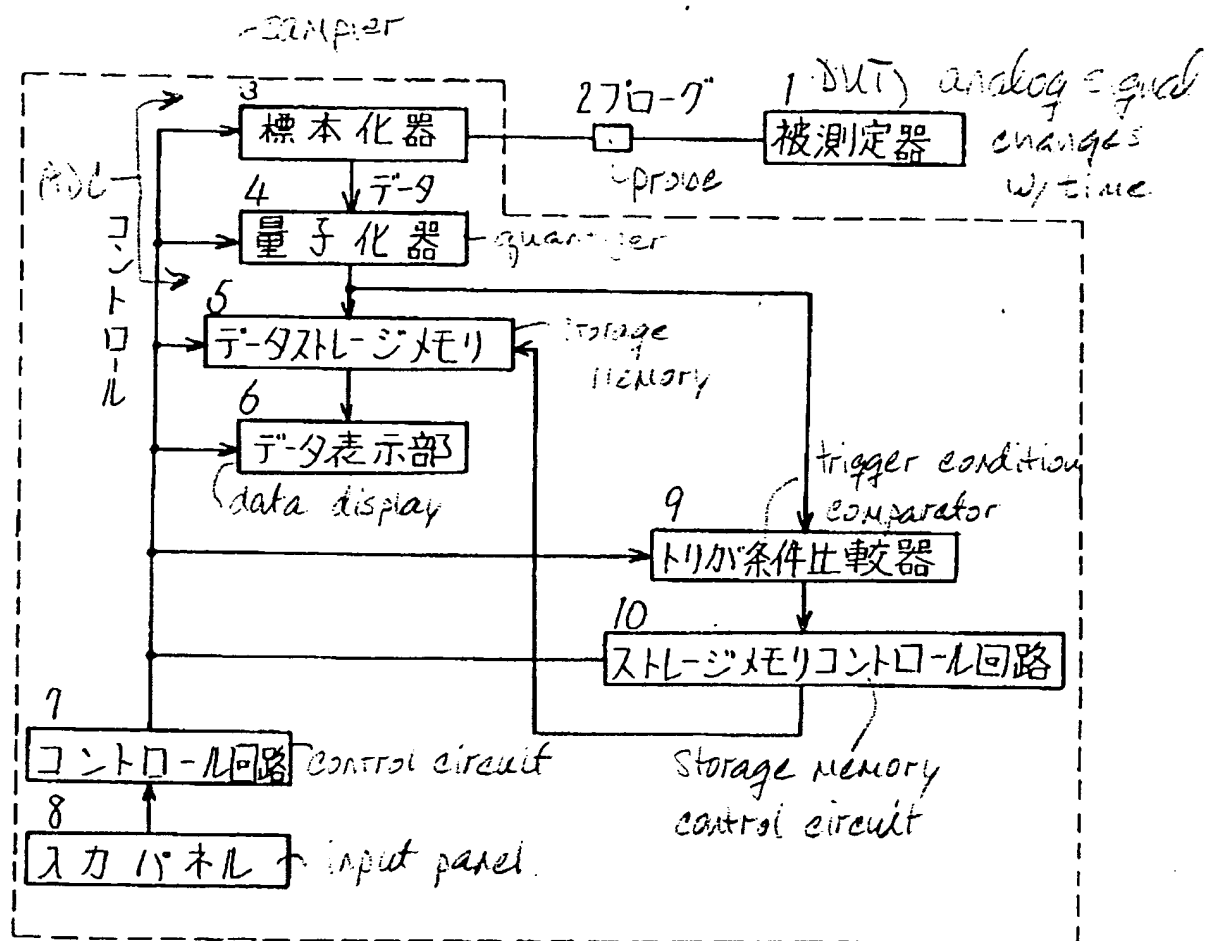 sampler
3
標本化器
2プローグ
probe
1
DUT) analog signal
changes
w/time
被測定器
ADC
コントロール
データ
4
量子化器
quantizer
5
データストレージメモリ
storage
memory
6
データ表示部
data display
trigger condition
comparator
9
トリガ条件比較器
10
ストレージメモリコントロール回路
storage memory
control circuit
7
コントロール回路
control circuit
8
入力パネル
input panel.